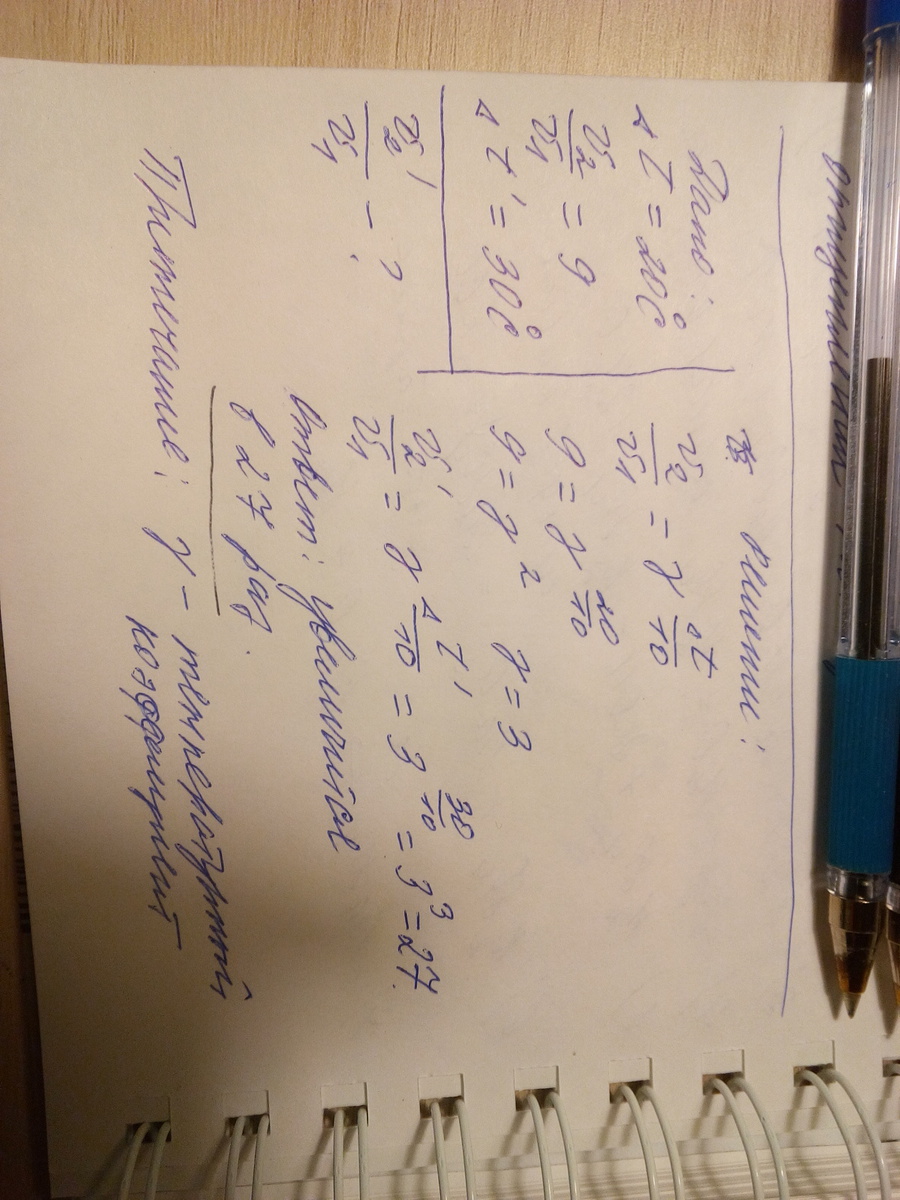 Дано:
Δt = 20°C
υ₂/υ₁ = 9
Δt' = 30°C
υ₂'/υ₁ - ?
Решение:
υ₂/υ₁ = γ^(Δt/10)
9 = γ^(20/10)
9 = γ² γ = 3
υ₂'/υ₁ = γ^(Δt'/10) = 3^(30/10) = 3³ = 27.
Ответ: увеличится
в 27 раз.
Примечание: γ - температурный
коэффициент